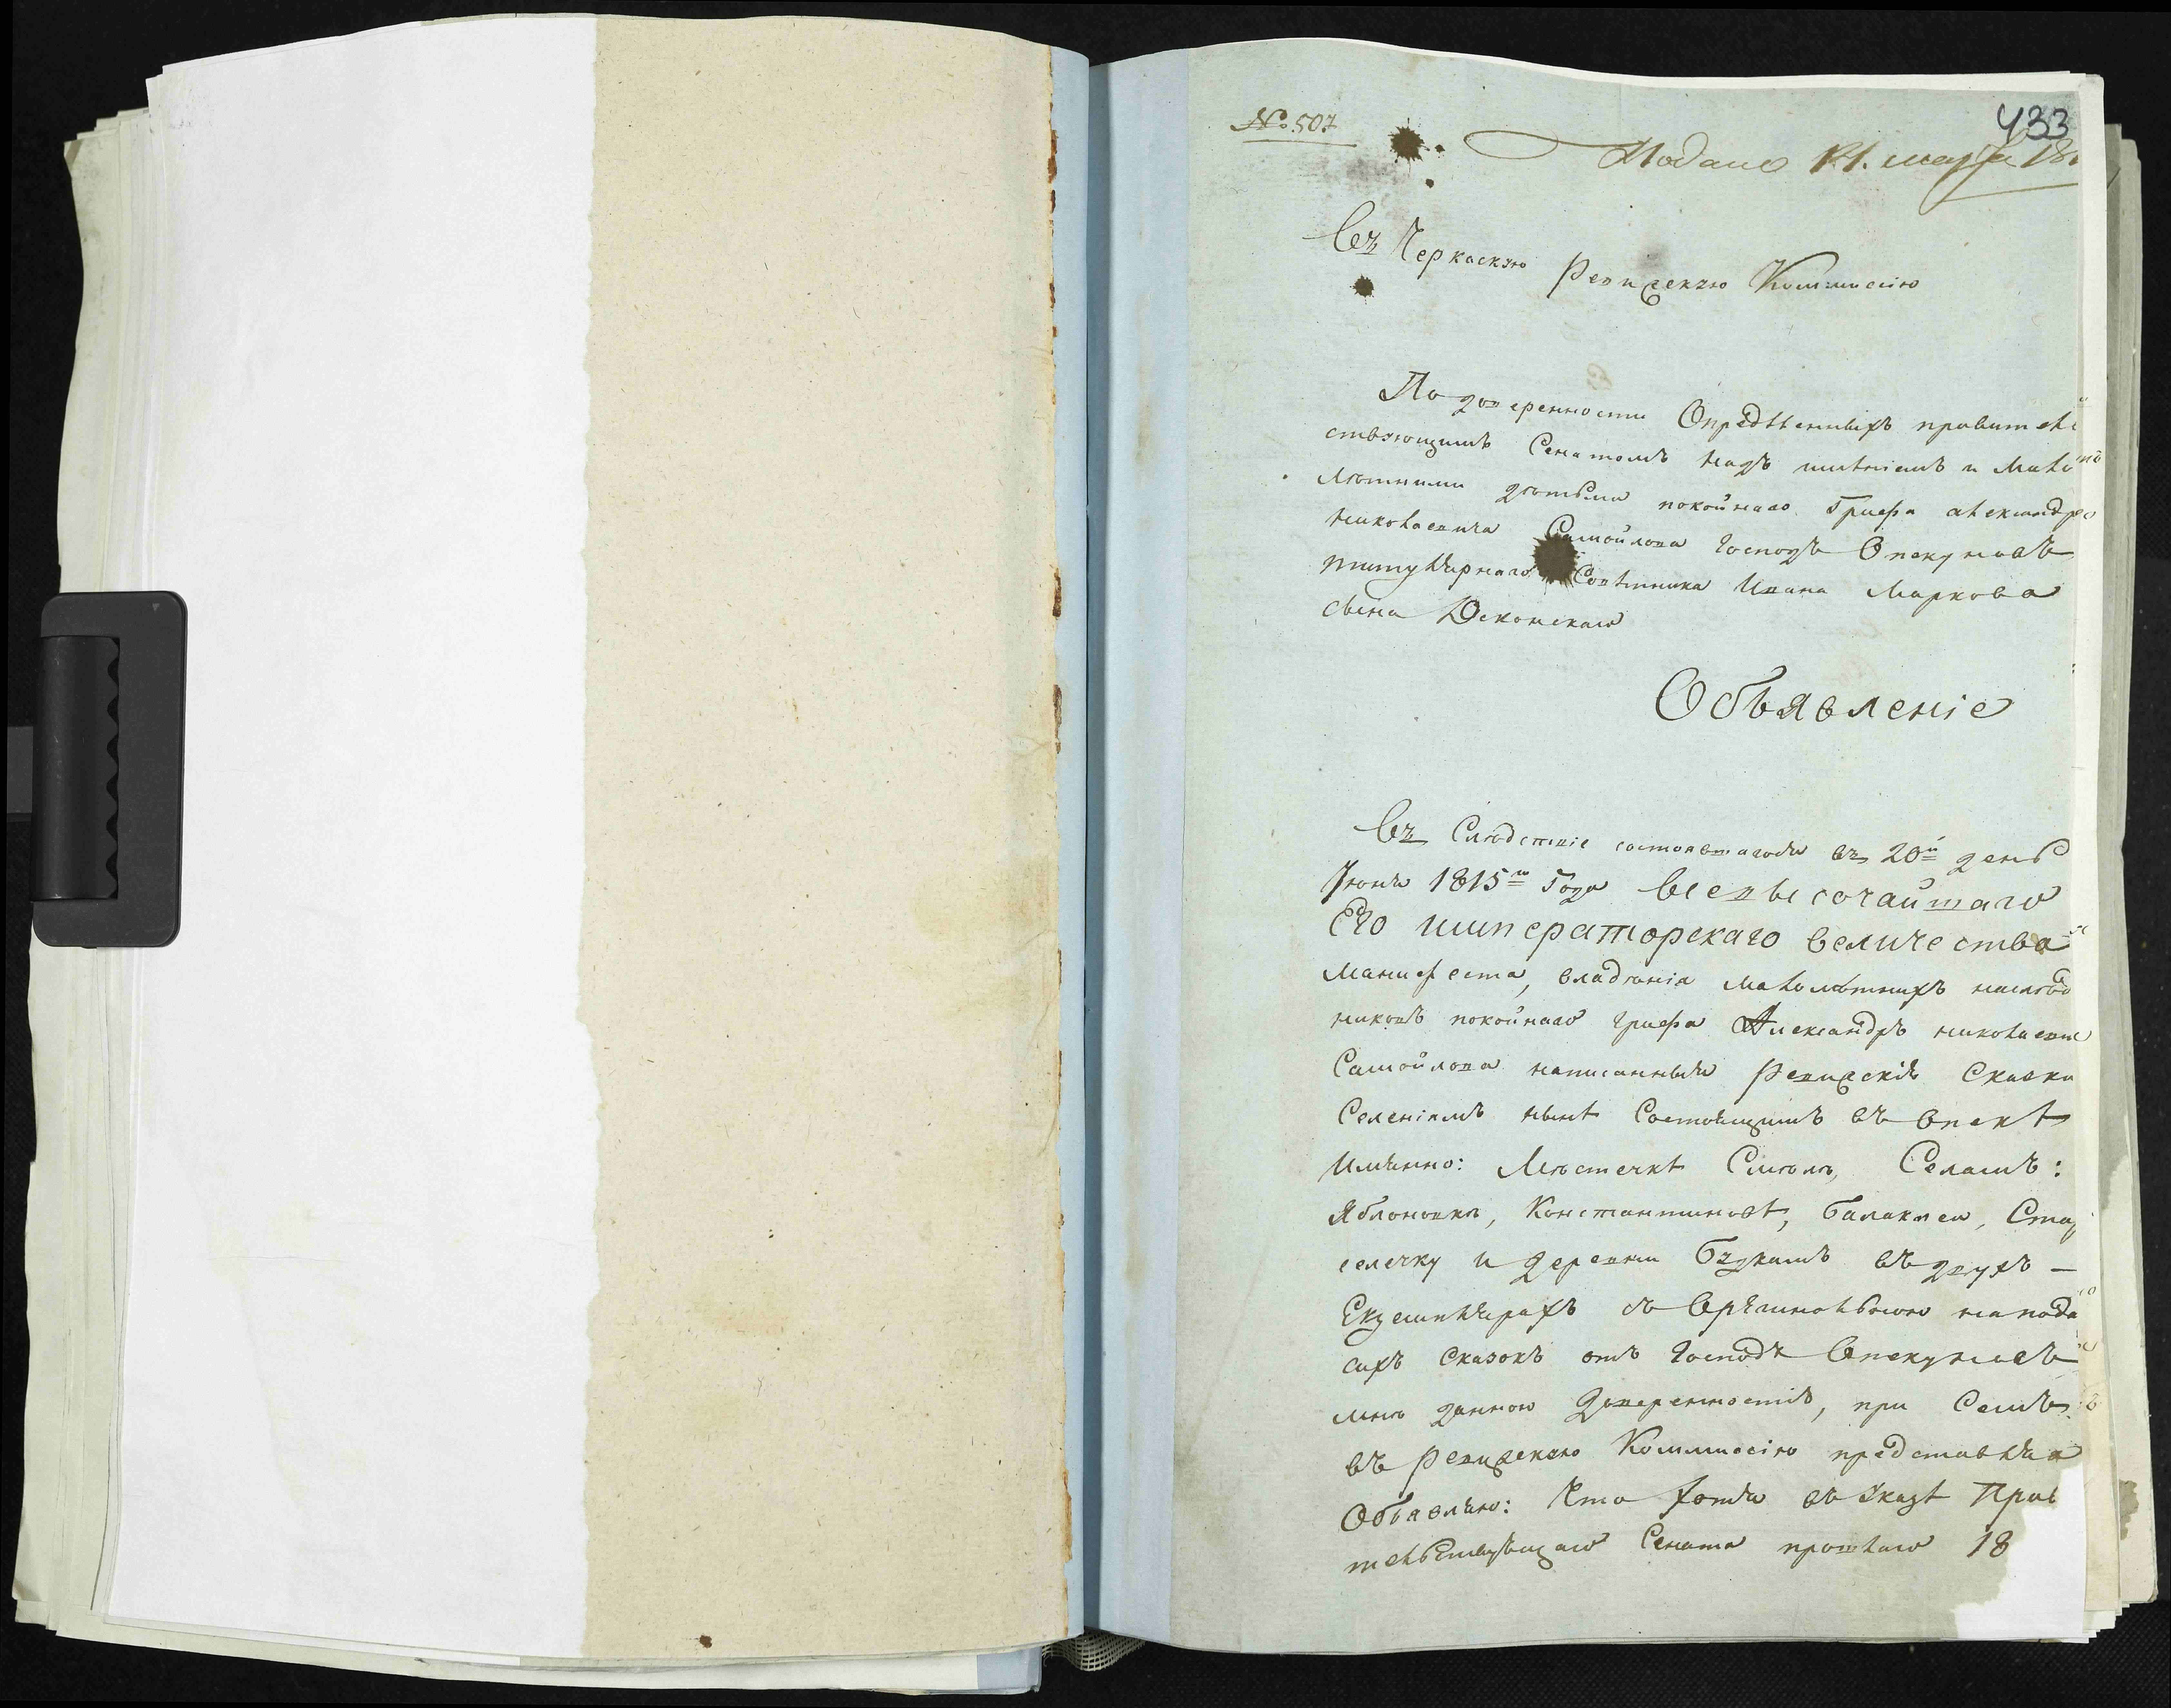 № 507
433
Подано 14. марта 18
Въ Черкаскую Ревизскую Коммиссію
По доверенности Опредѣленныхъ правитель
ствующимъ Сенатомъ надъ имѣніемъ и мало
лѣтними дѣтьми покойнаго Графа александра
николаевича Самойлова Господъ Опекуновъ
титулярнаго Совѣтника Ивана Маркова
сына
Объявленіе
Въ Слѣдствіе состоявшагося въ 20й день
Июня 1815го Года Всевысочайшаго
Его императорскаго величества
Манифеста, владѣнія малолѣтныхъ наслѣд
никовъ покойнаго графа Александръ николаевич
Самойлова написанныя Ревизскія Сказки
Селеніямъ нынѣ Состоящимъ въ Опекѣ
Имянно: Мѣстечкѣ Смѣлѣ, Селамъ:
Яблоновкѣ, Константиновѣ, Балаклеи, Стар
селечку и деревни Будкамъ въ двухъ —
Екземплярахъ съ Орягинольною на пода
сихъ Сказокъ отъ Господъ Опекуновъ
мнѣ данною Доверенностію, при Семъ
въ Ревизскую Коммиссію представляя
Объявляю: Что хотя въ Указѣ Прав
тельствующаго Сената прошлаго 18